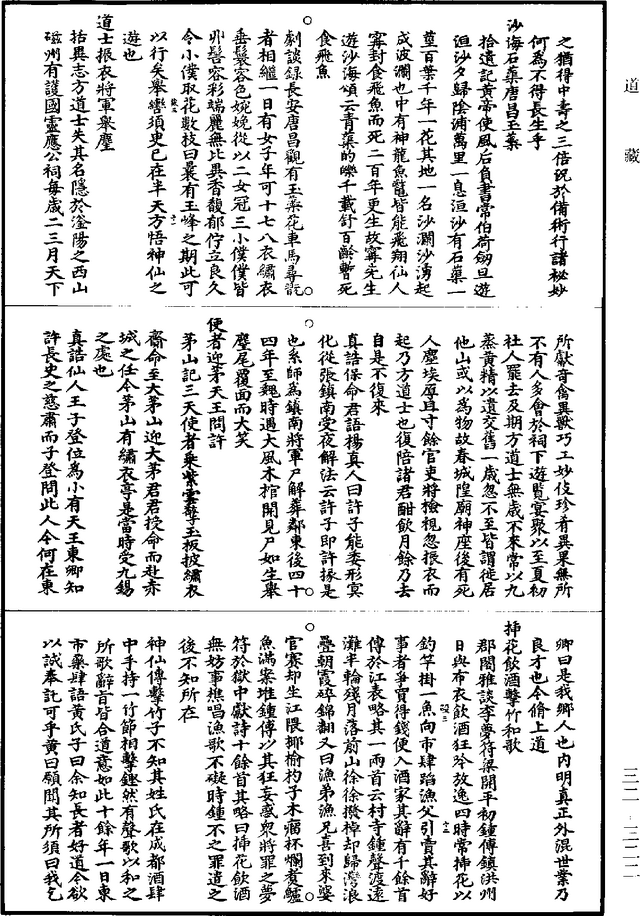 道藏
三二—三二二
之猶得中壽之三倍況於備術行諸祕妙
何為不得長生乎
沙海石蕖唐昌玉蘂
拾遺記黃帝使風后負書常伯荷劒旦遊
洹沙夕歸陰浦萬里一息洹沙有石蕖一
莖百葉千年一花其地一名沙瀾沙湧起
成波瀾也中有神龍魚鼈皆能飛翔仙人
甯封食飛魚而死二百年更生故甯先生
遊沙海頌云青蕖的皪千載舒百齡暫死
食飛魚
劇談錄長安唐昌觀有玉蘂花車馬尋翫
者相繼一日有女子年可十七八衣繡衣
垂鬟容色婉娩從以二女冠三小僕僕皆
丱髻容彩端麗無比異香馥郁佇立良久
令小僕取花數枝曰曩有玉峰之期此可
以行矣舉轡須臾已在半天方悟神仙之
遊也
道士振衣將軍舉麈
拾異志方道士失其名隱於滏陽之西山
磁州有護國靈應公祠每歲二三月天下
所獻奇禽異獸巧工妙伎珍肴異果無所
不有人多會於祠下遊覽宴聚以至夏初
社人罷去及期方道士無歲不來常以九
蒸黃精以遺交舊一歲忽不至皆謂徙居
他山或以為物故春城隍廟神座後有死
人塵埃厚且寸餘官吏將檢視忽振衣而
起乃方道士也復陪諸君酣飲月餘乃去
自是不復來
真誥保命君語楊真人曰許子能委形冥
化從張鎮南受夜解法云許子即許掾是
也系師為鎮南將軍尸解葬鄴東後四十
四年至魏時遇大風木棺開見尸如生舉
麈尾覆面而大笑
使者迎茅天王問許
茅山記三天使者乘紫雲擎玉板披繡衣
齎命至大茅山迎大茅君君授命而赴赤
城之任今茅山有繡衣亭是當時受九錫
之處也
真誥仙人王子登位為小有天王東卿知
許長史之慈肅而子登問此人今何在東
卿曰是我鄉人也內明真正外混世業乃
良才也今脩上道
插花飲酒擊竹和歌
郡閣雅談李夢符梁開平初鍾傅鎮洪州
日與布衣飲酒狂吟放逸四時常插花以
釣竿掛一魚向市肆蹈漁父引賣其辭好
事者爭買得錢便入酒家其辭有千餘首
傳於江表略其一兩首云村寺鐘聲渡遠
灘半輪殘月落前山徐徐撥棹却歸灣浪
疊朝霞碎錦翻又曰漁弟漁兄喜到來婆
官賽却坐江隈揶榆杓子木瘤杯爛煮鱸
魚滿案堆鍾傅以其狂妄惑衆將罪之夢
符於獄中獻詩十餘首其略曰插花飲酒
無妨事樵唱漁歌不礙時鍾不之罪遣之
後不知所在
神仙傳擊竹子不知其姓氏在成都酒肆
中手持一竹節相擊鏗然有聲歌以和之
所歌辭旨皆合道意如此十餘年一日東
市藥肆語黃氏子曰余知長者好道今欲
以誠奉託可乎黃曰願聞其所須曰我乞